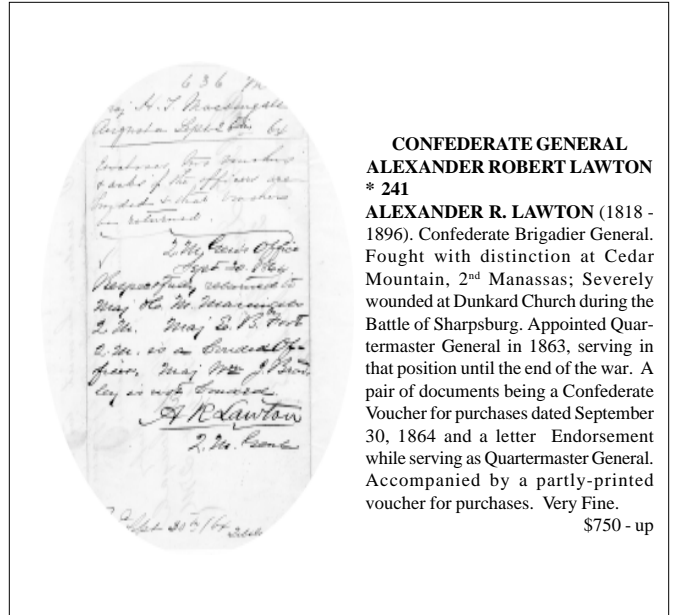 636
Augusta Sept 26th 64
Encloses two vouchers
& asks if the officers are
bonded & that vouchers
be returned.
Q. M. Genl's Office
Sept 30. 1864.
Respectfully returned to
Maj
Q. M. Maj E. B. Fort
Q. M. is a bonded Of-
ficer, Maj Wm J.
ley is not bonded.
A R Lawton
Q. M. Genl
Sept 30th /64
CONFEDERATE GENERAL
ALEXANDER ROBERT LAWTON
* 241
ALEXANDER R. LAWTON (1818 -
1896). Confederate Brigadier General.
Fought with distinction at Cedar
Mountain, 2nd Manassas; Severely
wounded at Dunkard Church during the
Battle of Sharpsburg. Appointed Quar-
termaster General in 1863, serving in
that position until the end of the war. A
pair of documents being a Confederate
Voucher for purchases dated September
30, 1864 and a letter Endorsement
while serving as Quartermaster General.
Accompanied by a partly-printed
voucher for purchases. Very Fine.
$750 - up